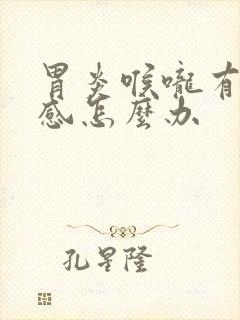 胃炎喉嚨有
感怎麼办
孔星隆